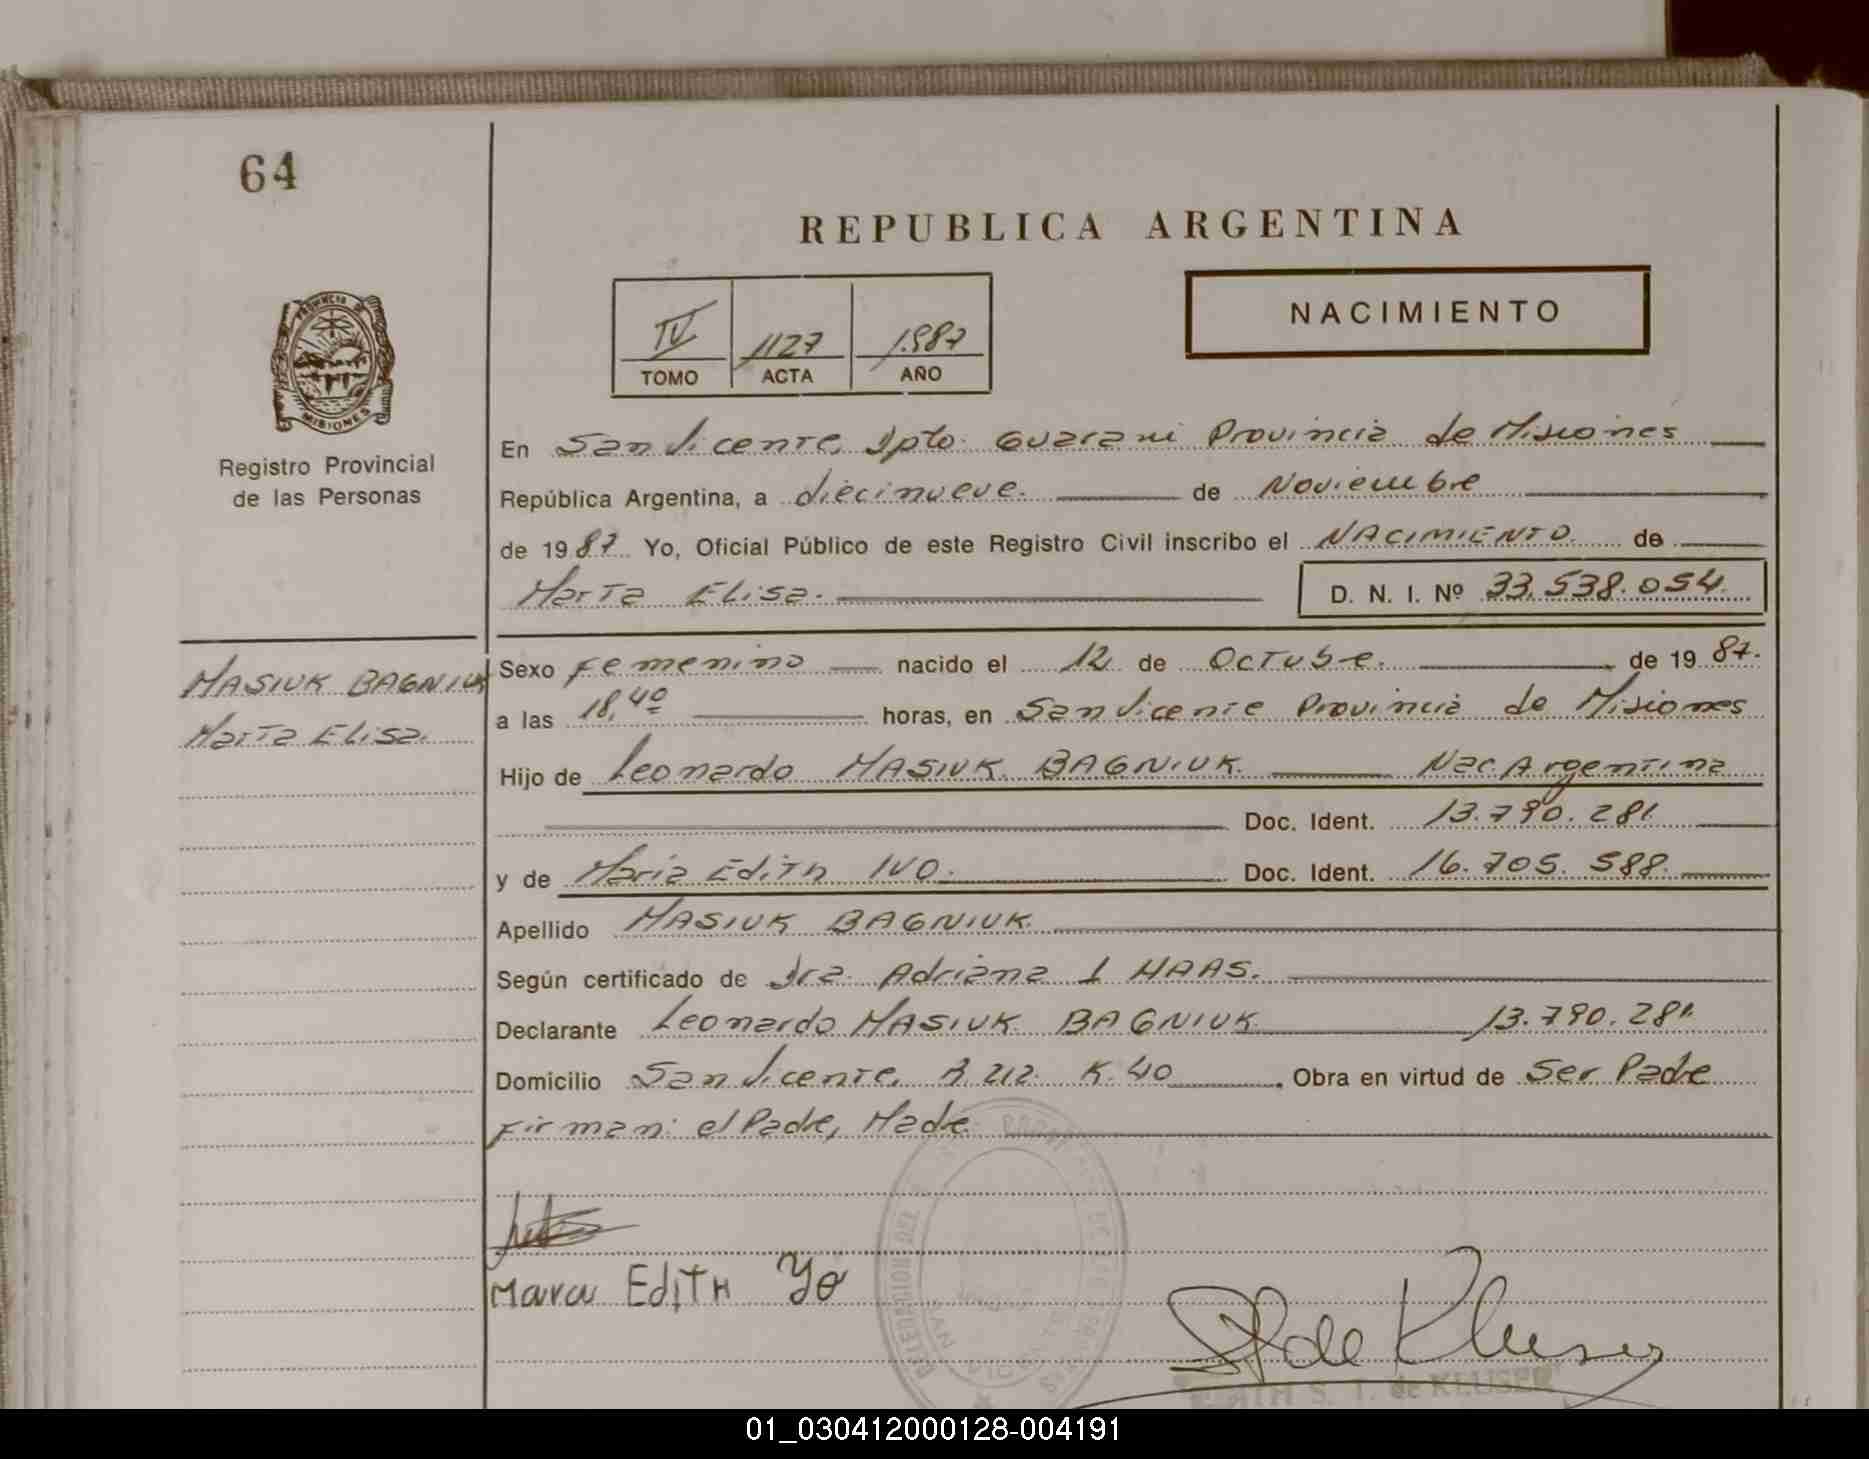 64
REPUBLICA ARGENTINA
NACIMIENTO
IV 1127 1987
TOMO ACTA AÑO
PROVINCIA DE
MISIONES
Registro Provincial
de las Personas
En San Vicente, Dpto. Guarani Provincia de Misiones
República Argentina, a diecinueve. de Noviembre
de 1987 Yo, Oficial Público de este Registro Civil inscribo el NACIMIENTO. de
Marta Elisa. D. N. I. Nº 33.538.054.
MASIUK BAGNIUK
Marta Elisa.
Sexo Femenino nacido el 12 de Octubre. de 1987.
a las 18,40 horas, en San Vicente Provincia de Misiones
Hijo de Leonardo MASIUK BAGNIUK. Nac. Argentina
Doc. Ident. 13.790.281
y de Maria Edith IVO. Doc. Ident. 16.705.588.
Apellido MASIUK BAGNIUK.
Según certificado de Dra. Adriana I HAAS.
Declarante Leonardo MASIUK BAGNIUK 13.790.281.
Domicilio San Vicente, R 212. K. 40 . Obra en virtud de Ser Padre
Firman: el Padre, Madre.
DELEGACION DEL
SAN VICENTE
EDITH
de Kluser
S. T. de KLUSER
01_030412000128-004191